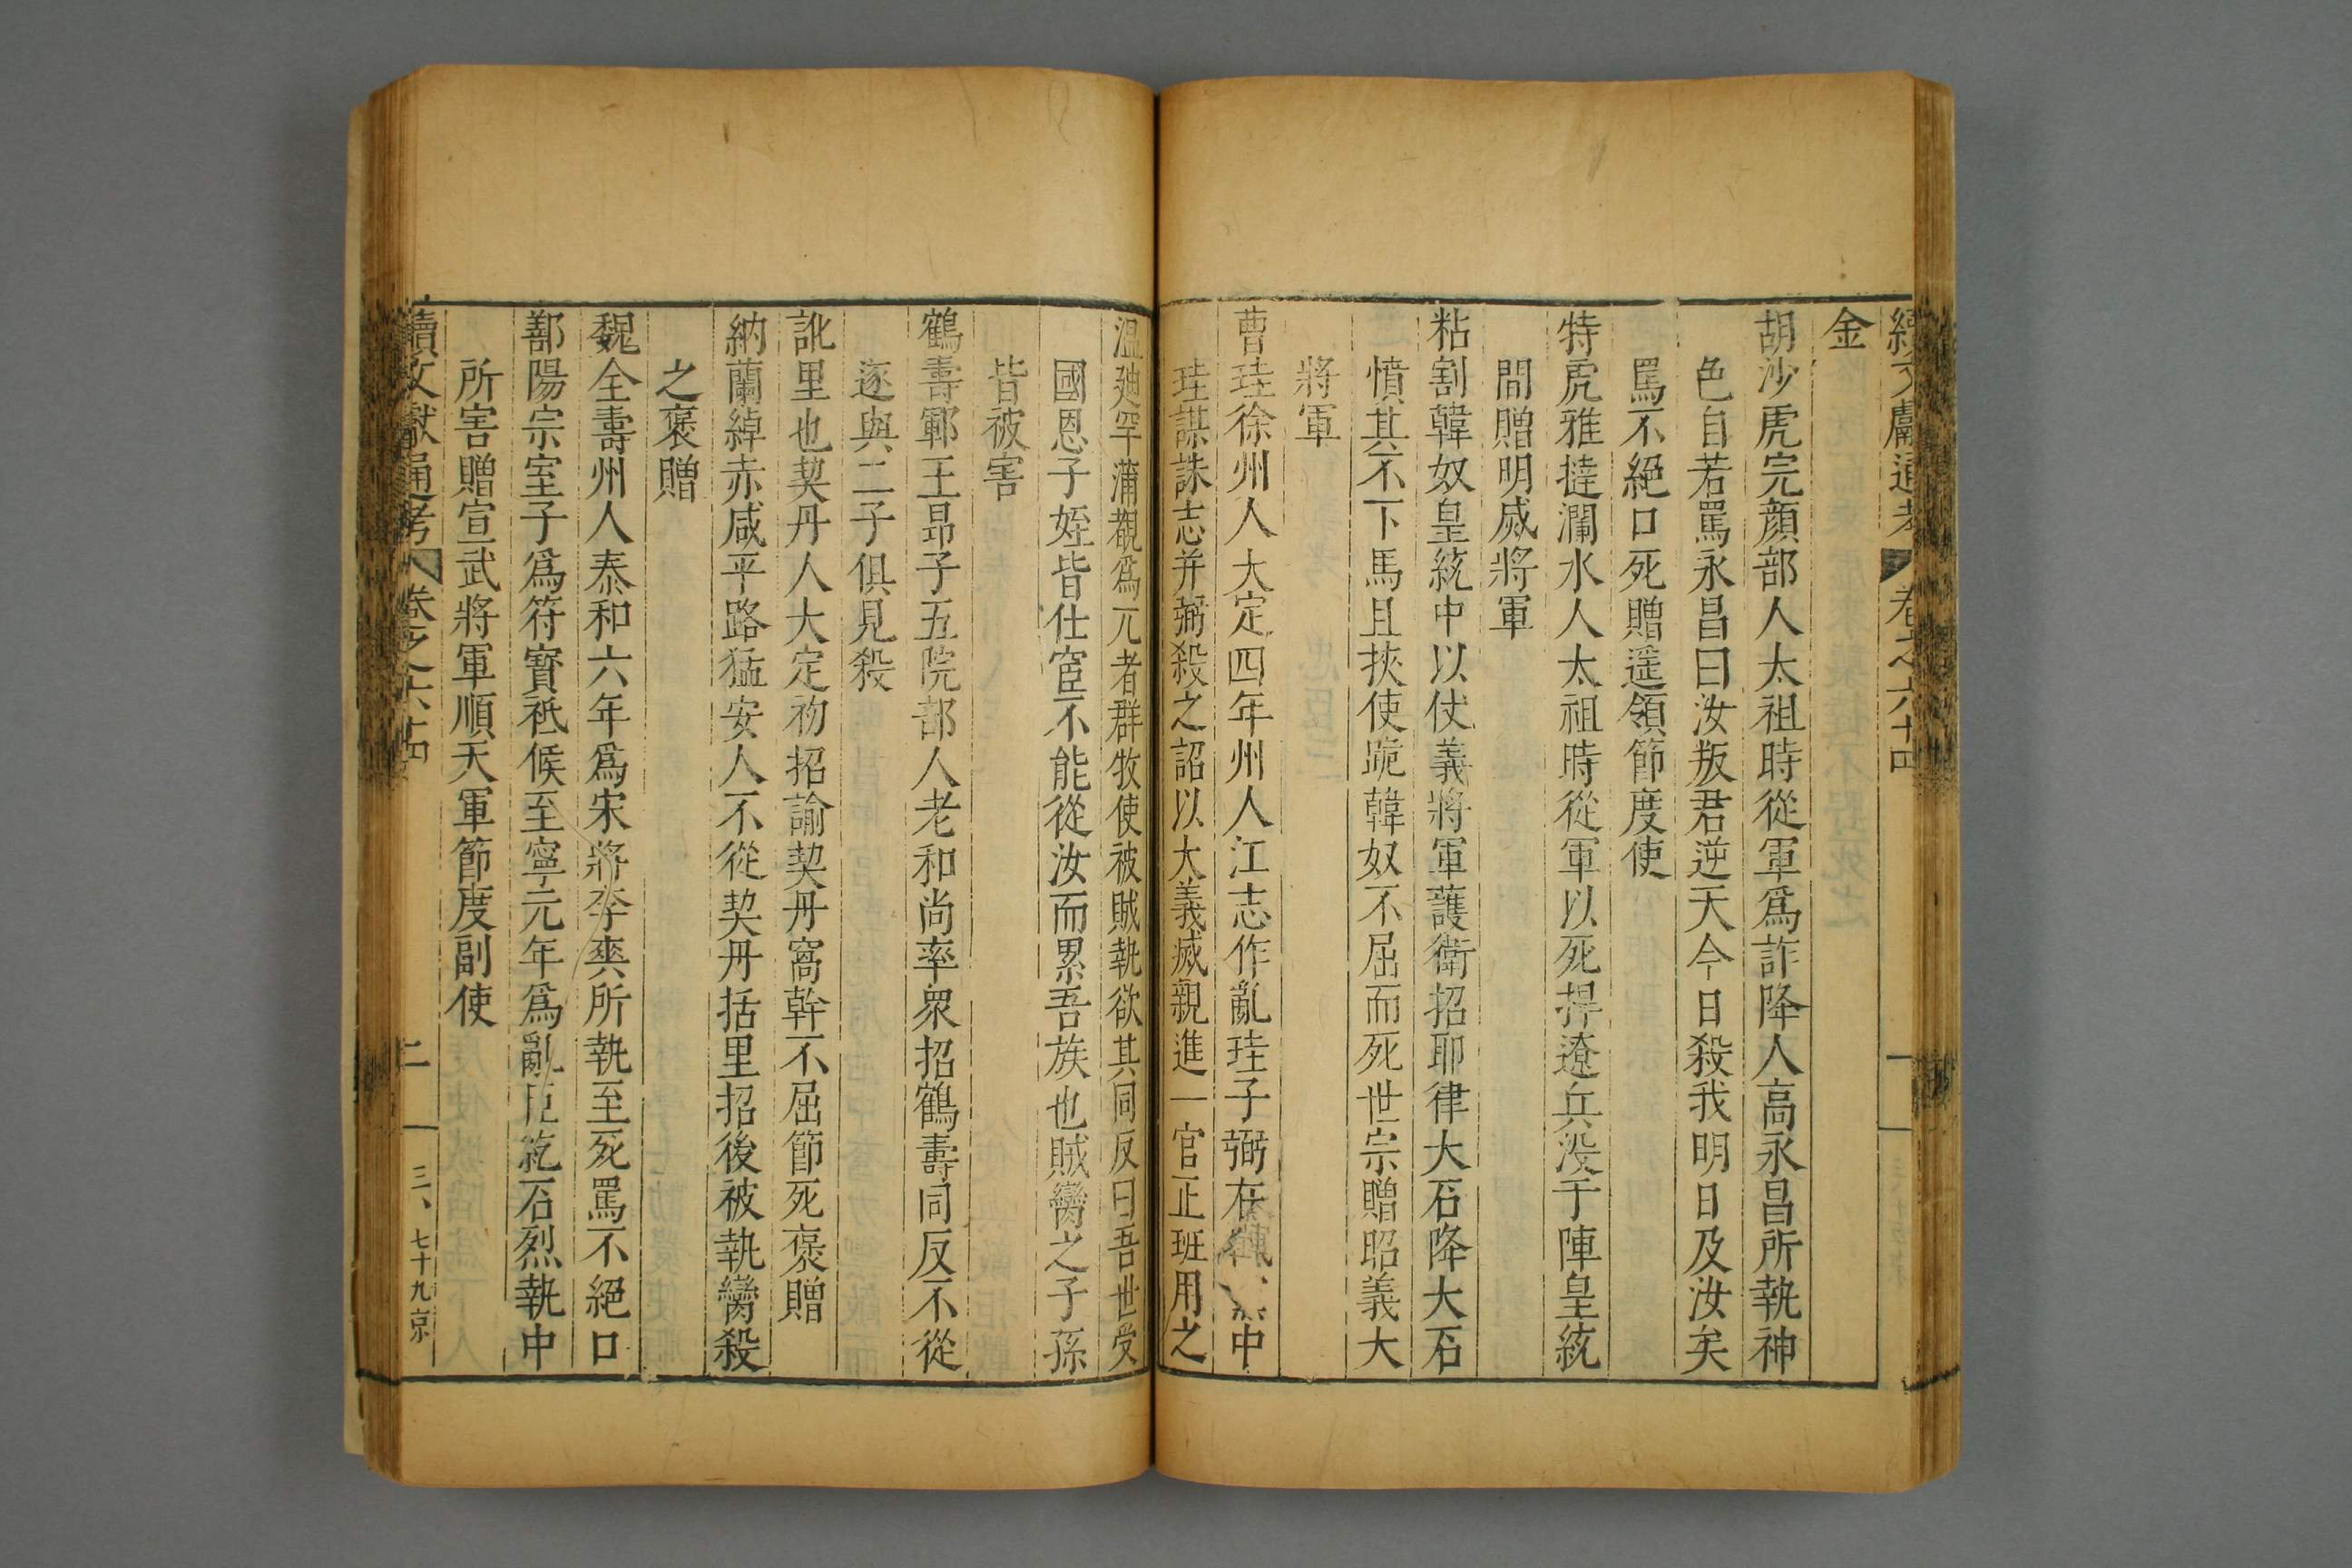 續文獻通考 卷之六十四 一
金
胡沙虎完顏部人太祖時從軍爲詐降人高永昌所執神
色自若罵永昌曰汝叛君逆天今日殺我明日及汝矣
罵不絕口死贈遥領節度使
特虎雅撻瀾水人太祖時從軍以死捍遼兵没于陣皇統
間贈明威將軍
粘割韓奴皇統中以仗義將軍護衛招耶律大石降大石
憤其不下馬且挾使跪韓奴不屈而死世宗贈昭義大
將軍
曹珪徐州人大定四年州人江志作亂珪子弼在中
珪謀誅志并弼殺之詔以大義滅親進一官正班用之
溫廸罕蒲覩爲兀者群牧使被賊執欲其同反曰吾世受
國恩子姪皆仕宦不能從汝而累吾族也賊臠之子孫
皆被害
鶴壽鄆王昻子五院部人老和尚率衆招鶴壽同反不從
逐與二子俱見殺
訛里也契丹人大定初招諭契丹窩幹不屈節死褒贈
納蘭綽赤咸平路猛安人不從契丹括里招後被執臠殺
之褒贈
魏全壽州人泰和六年爲宋將李爽所執至死罵不絕口
鄯陽宗室子爲符寶祗候至寧元年爲亂臣紇石烈執中
所害贈宣武將軍順天軍節度副使
續文獻通考 卷之六十四 二 三、七十九京